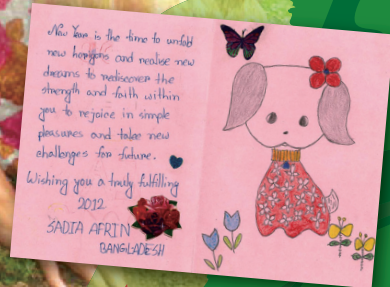 New Year is the time to unfold
new horizons and realise new
dreams to rediscover the
strength and faith within
you to rejoice in simple
pleasures and take new
challenges for future.
Wishing you a truly fulfilling
2012
SADIA AFRIN
BANGLADESH